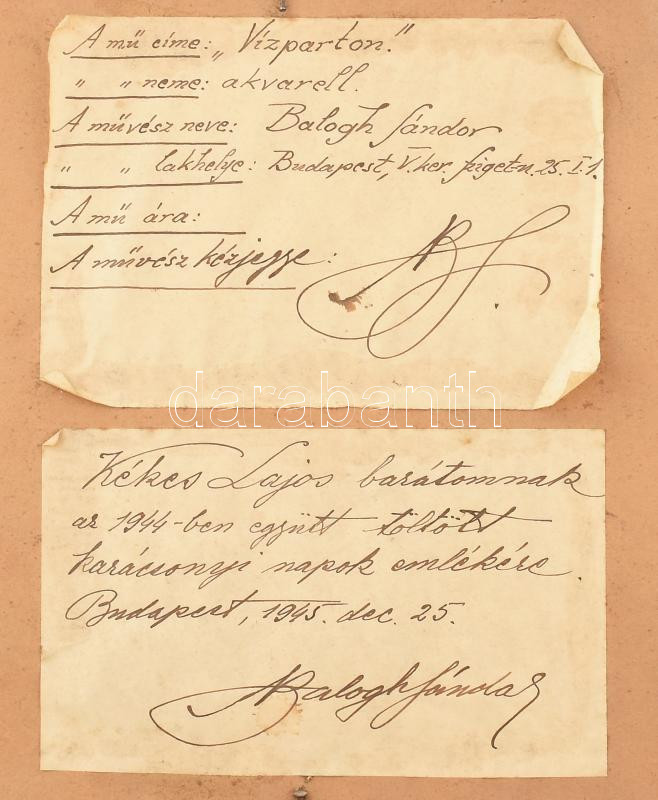 A mű címe: „Vízparton."
" " neme: akvarell.
A művész neve: Balogh Sándor
" " lakhelye: Budapest, V. ker. Sziget-u. 25. I. 1.
A mű ára:
A művész kézjegye:
BS.
darabanth
Kékes Lajos barátomnak
az 1944-ben együtt töltött
karácsonyi napok emlékére.
Budapest, 1945. dec. 25.
Balogh Sándor